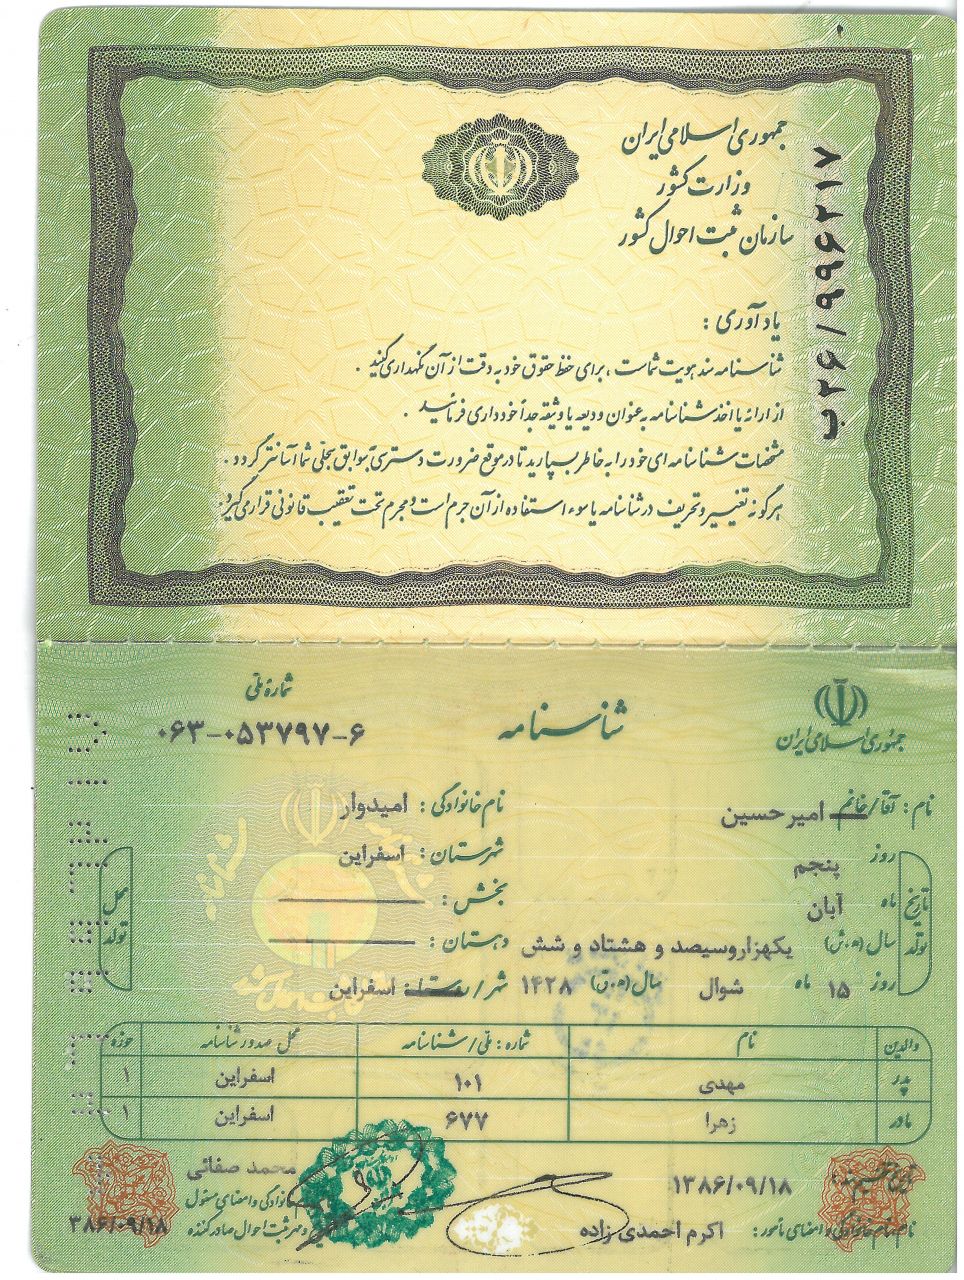 جمهوری اسلامی ایران
وزارت کشور
سازمان ثبت احوال کشور
ب۲۶/۹۹۶۲۱۷
یادآوری :
شناسنامه سند هویت شماست ، برای حفظ حقوق خود به دقت از آن نگهداری کنید .
از ارائه یا اخذ شناسنامه به عنوان ودیعه یا وثیقه جداً خودداری فرمائید .
مشخصات شناسنامه ای خود را به خاطر بسپارید تا در موقع ضرورت دسترسی به سوابق سجلی شما آسانتر گردد .
هرگونه تغییر و تحریف در شناسنامه یا سوء استفاده از آن جرم است و مجرم تحت تعقیب قانونی قرار می گیرد .
جمهوری اسلامی ایران
شناسنامه
شماره ملی
۰۶۳-۰۵۳۷۹۷-۶
نام : آقا/خانم امیرحسین
نام خانوادگی : امیدوار
تاریخ تولد
روز پنجم
ماه آبان
سال (ه.ش) یکهزاروسیصد و هشتاد و شش
روز ۱۵ ماه شوال سال (ه.ق) ۱۴۲۸
محل تولد
شهرستان : اسفراین
بخش :
دهستان :
شهر/روستا : اسفراین
والدین نام شماره : ملی/شناسنامه محل صدور شناسنامه حوزه
پدر مهدی ۱۰۱ اسفراین ۱
مادر زهرا ۶۷۷ اسفراین ۱
۱۳۸۶/۰۹/۱۸
نام خانوادگی و امضای مأمور : اکرم احمدی زاده
محمد صفائی
نام خانوادگی و امضای مسئول
و مهر ثبت احوال صادرکننده
۳۸۶/۰۹/۱۸